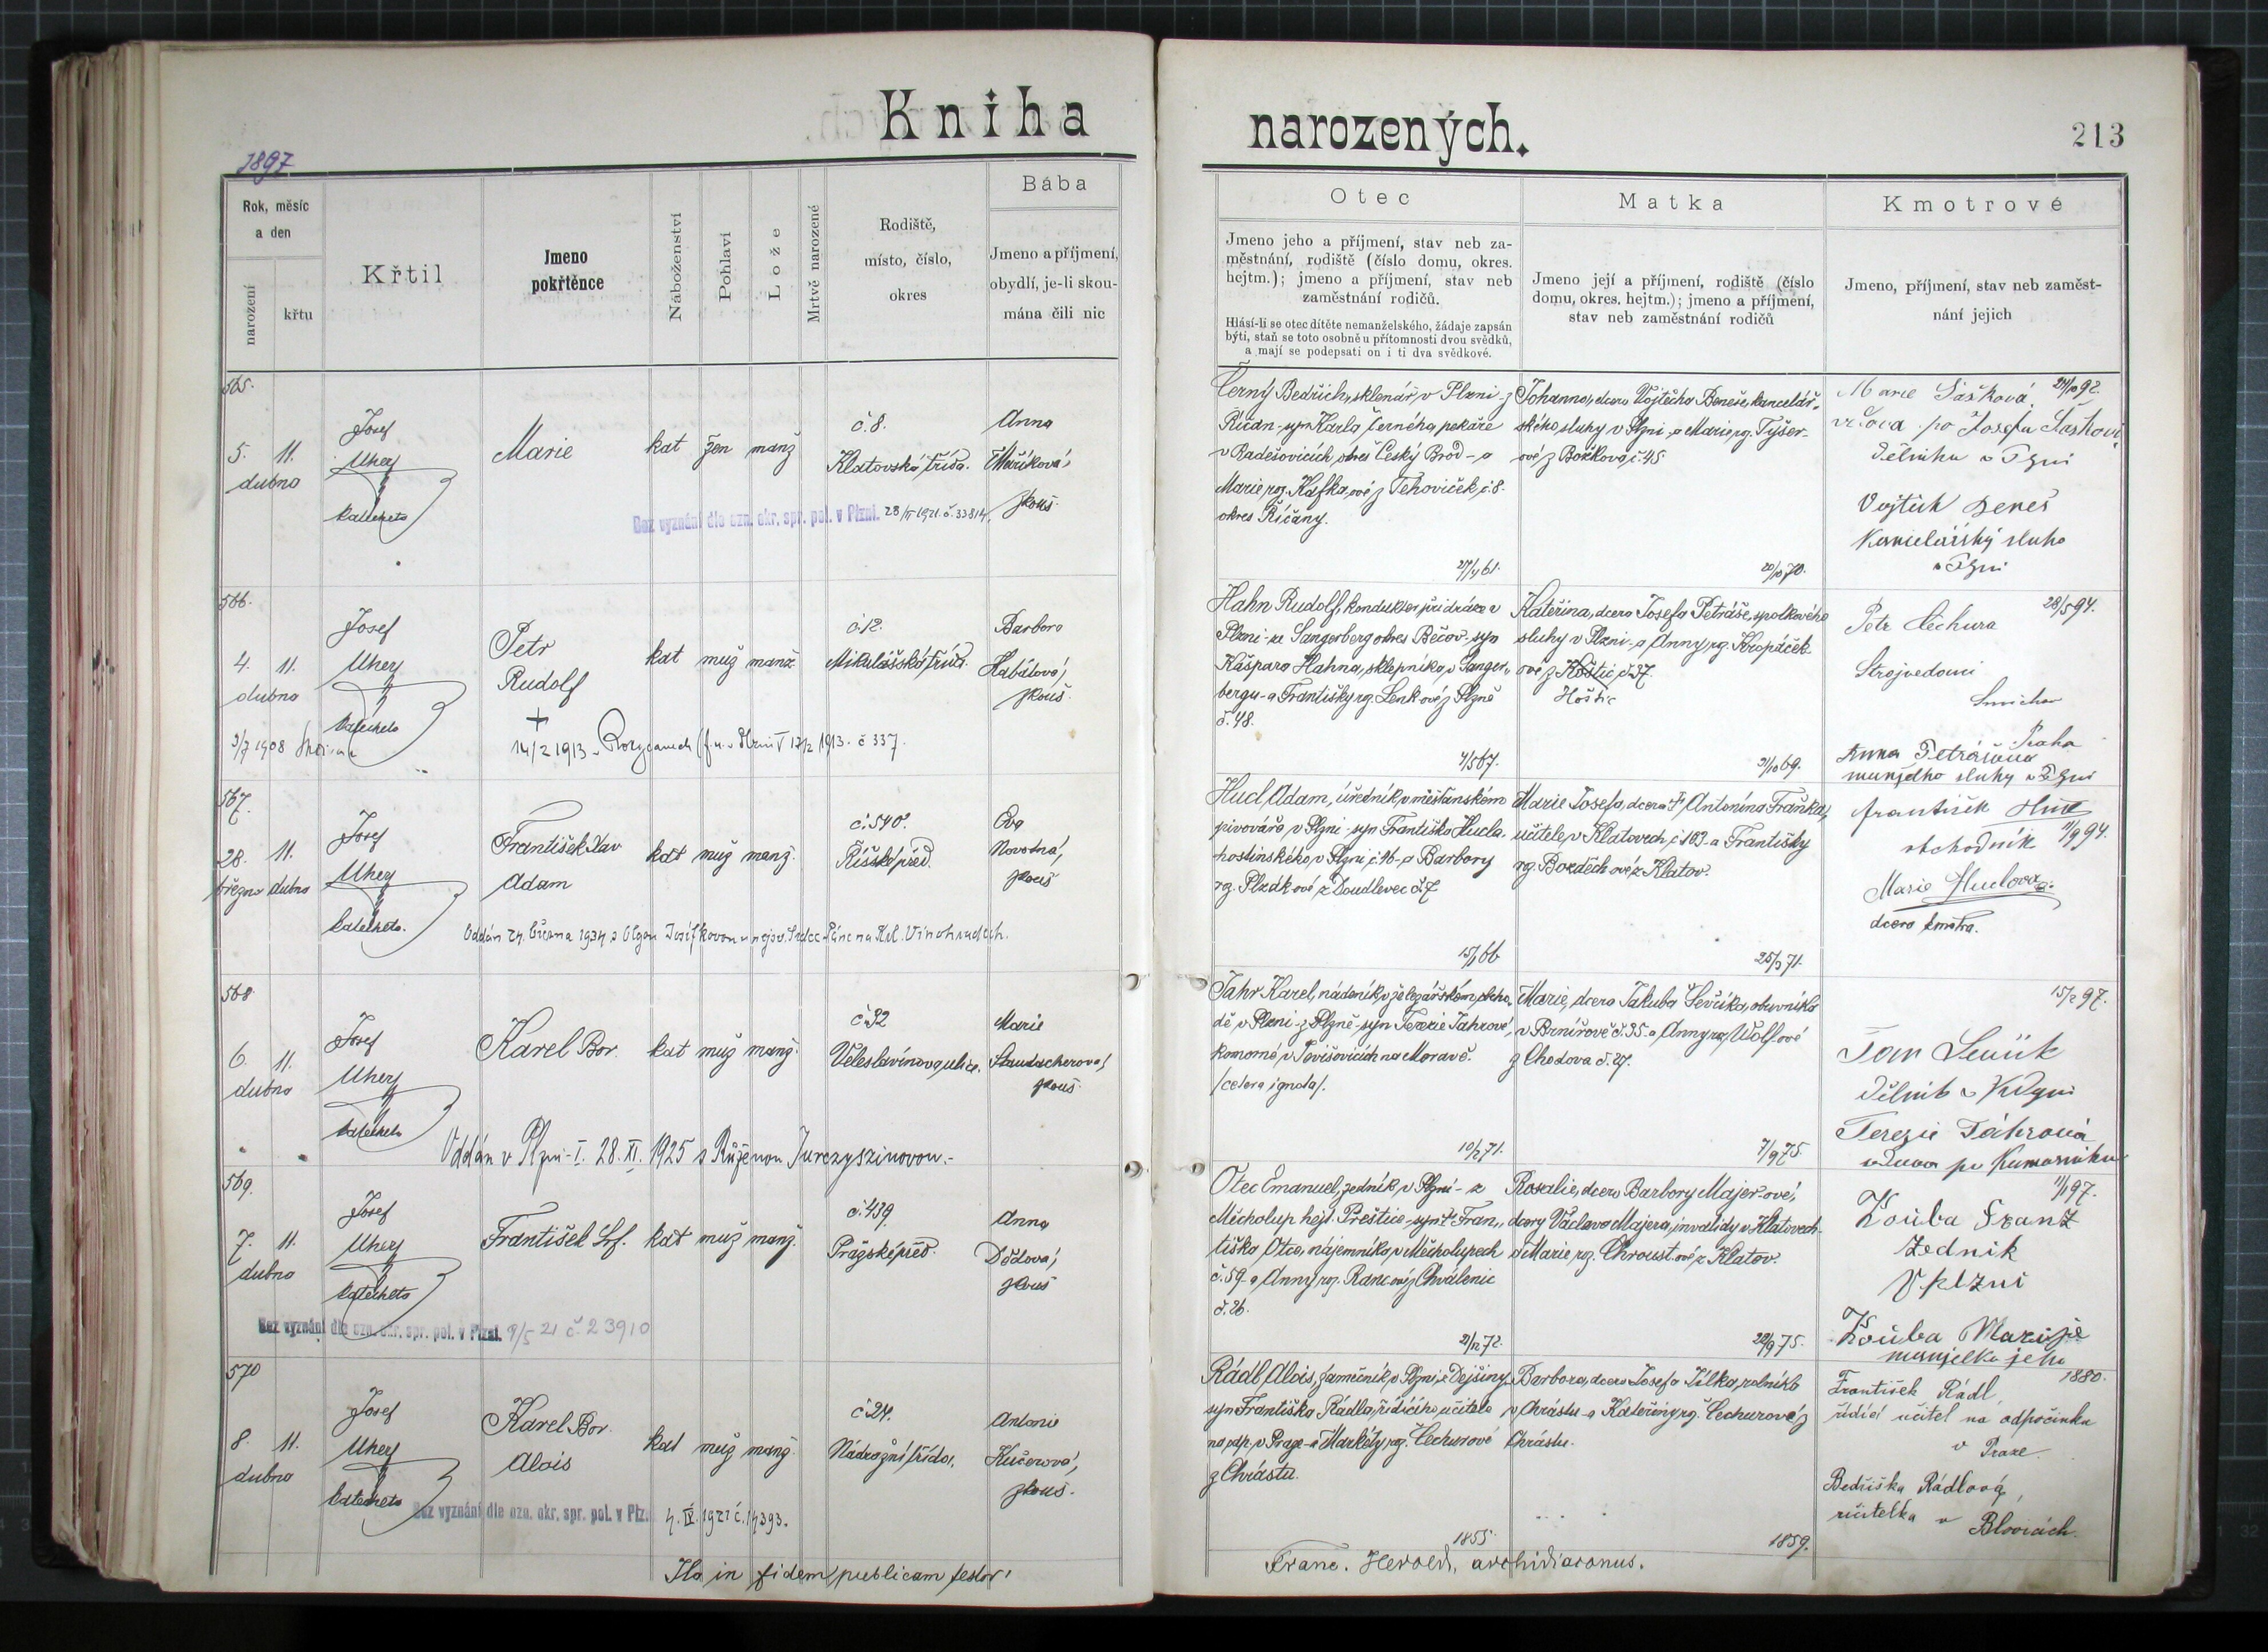 Kniha
narozených.
213
1897
Rok, měsíc
a den
narození
křtu
Křtil
Jmeno
pokřtěnce
Náboženství
Pohlaví
Lože
Mrtvě narozené
Rodiště,
místo, číslo,
okres
Bába
Jmeno a příjmení,
obydlí, je-li skou-
mána čili nic
Otec
Jmeno jeho a příjmení, stav neb za-
městnání, rodiště (číslo domu, okres.
hejtm.); jmeno a příjmení, stav neb
zaměstnání rodičů.
Hlásí-li se otec dítěte nemanželského, žádaje zapsán
býti, staň se toto osobně u přítomnosti dvou svědků,
a mají se podepsati on i ti dva svědkové.
Matka
Jmeno její a příjmení, rodiště (číslo
domu, okres. hejtm.); jmeno a příjmení,
stav neb zaměstnání rodičů
Kmotrové
Jmeno, příjmení, stav neb zaměst-
nání jejich
565.
5. 11.
dubna
Josef
Uherz
katecheta
Marie
kat žen manž
č. 8.
Klatovská třída.
Anna
Maříková,
zkouš.
Bez vyznání dle ozn. okr. spr. pol. v Plzni. 28/II 1921. č. 33814.
Černý Bedřich, sklenář v Plzni - z
Říčan - syn Karla Černého pekaře
v Radešovicích, okres Český Brod - a
Marie roz. Kafka, ové z Tehoviček č. 8.
okres Říčany.
27/4 61.
Johanna, dcera Vojtěcha Beneše, kancelář-
ského sluhy v Plzni - a Marie rg. Tyšer-
ové z Božkova, č. 45
20/10 70.
Marie Šašková, 24/10 92.
vdova po Josefu Šaškovi,
dělníku v Plzni
Vojtěch Beneš
Kancelářský sluha
v Plzni
566.
4. 11.
dubna
Josef
Uherz
katecheta
Petr
Rudolf
+
kat muž manž.
č. 12.
Mikulášská třída.
Barbora
Habátová,
zkouš.
3/7 1908
14/2 1913 v Rokycanech (f. ú. v Plzni V 17/2 1913. č 337.
Hahn Rudolf, konduktor při dráze v
Plzni - ze Sangerberg okres Bečov - syn
Kašpara Hahna, sklepníka, v Sanger-
bergu - a Františky rg. Lenk ové z Plzně
č. 48.
4/5 67.
Kateřina, dcera Josefa Petráše, spolkového
sluhy v Plzni - a Anny, rg. Kropáček-
ové z Koštic č. 37.
Hoštic
3/10 69.
28/5 94.
Petr Čechura
Strojvedoucí
Smíchov
Praha
Anna Petrášova
manž. sluhy v Plzni
567.
28. 11.
března dubna
Josef
Uherz
katecheta.
František Xav
Adam
kat muž manž.
č. 540.
Říšské před.
Eva
Novotná,
zkouš
Oddán 24. března 1934 s Olgou Josífkovou u nejsv. Srdce Páně na Král. Vinohradech.
Hucl Adam, úředník v měšťanském
pivováře v Plzni - syn Františka Hucla.
hostinského, v Plzni, č. 46 - a Barbory
rg. Plzák ové z Doudlevec č. 7
15/1 66
Marie Josefa, dcera + Antonína Fraňka,
učitele v Klatovech, č 183 - a Františky
rg. Bozděch ové z Klatov.
25/3 71.
František Hucl
obchodník 11/9 94.
Marie Huclova
dcera kmotra.
568
6. 11.
dubna
Josef
Uherz
katecheta
Karel Bor.
kat muž manž.
č. 32
Veleslavínova ulice.
Marie
Staudacherova,
zkouš.
Oddán v Plzni - I. 28. XI. 1925 s Růženou Jurczyszinovou.-
Jahr Karel, nádeník v železářském obcho-
dě v Plzni - z Plzně - syn Terezie Jahrové,
komorné, v Ivovišovicích na Moravě.
/cetera ignota/.
10/2 71.
Marie, dcera Jakuba Ševčíka, obuvníka
v Brnířově č. 35. a Anny rg. Wolf. ové
z Chodova č. 27.
7/9 75.
15/2 97.
Jan Ševčík
dělník v Plzni
Terezie Jáhrová
vdova po
569.
7. 11.
dubna
Josef
Uherz
katecheta
František Srf.
kat muž manž.
č. 439
Pražské před.
Anna
Dědová,
zkouš
Bez vyznání dle ozn. okr. spr. pol. v Plzni. 9/5 21 č. 23910
Otec Emanuel, zedník, v Plzni - z
Měcholup hejt. Přeštice - syn + Fran-
tiška Otce, nájemníka, v Měcholupech
č. 59. a Anny, rg. Ranc ové z Chválenic
č. 26.
21/12 72.
Rosalie, dcera Barbory Majer-ové,
dcery Václava Majera, invalidy v Klatovech-
a Marie, rg. Chroust. ové z Klatov.
22/9 75.
11/1 97.
Kouba Franz
zedník
V plzni
Kouba Marije
manželka jeho
570
8. 11.
dubna
Josef
Uherz
katecheta
Karel Bor.
Alois
kat muž manž.
č 24.
Nádražní třída.
Antonie
Kučerová,
zkouš.
Bez vyznání dle ozn. okr. spr. pol. v Plz. 4. IV. 1921 č. 14393.
Rádl Alois, zámečník, v Plzni, z Dejšiny
syn Františka Rádla, řídícího učitele
na odp. v Praze - a Markéty, rg. Čechurové
z Chrástu.
1855.
Barbora, dcera Josefa Jílka, rolníka
v Chrástu - a Kateřiny, rg. Čechurové z
Chrástu.
1859.
1880.
František Rádl,
řídící učitel na odpočinku
v Praze
Bedřiška Rádlová,
učitelka v Blovicích.
Ita in fidem publicam testor:
Franc. Herold, archidiaconus.